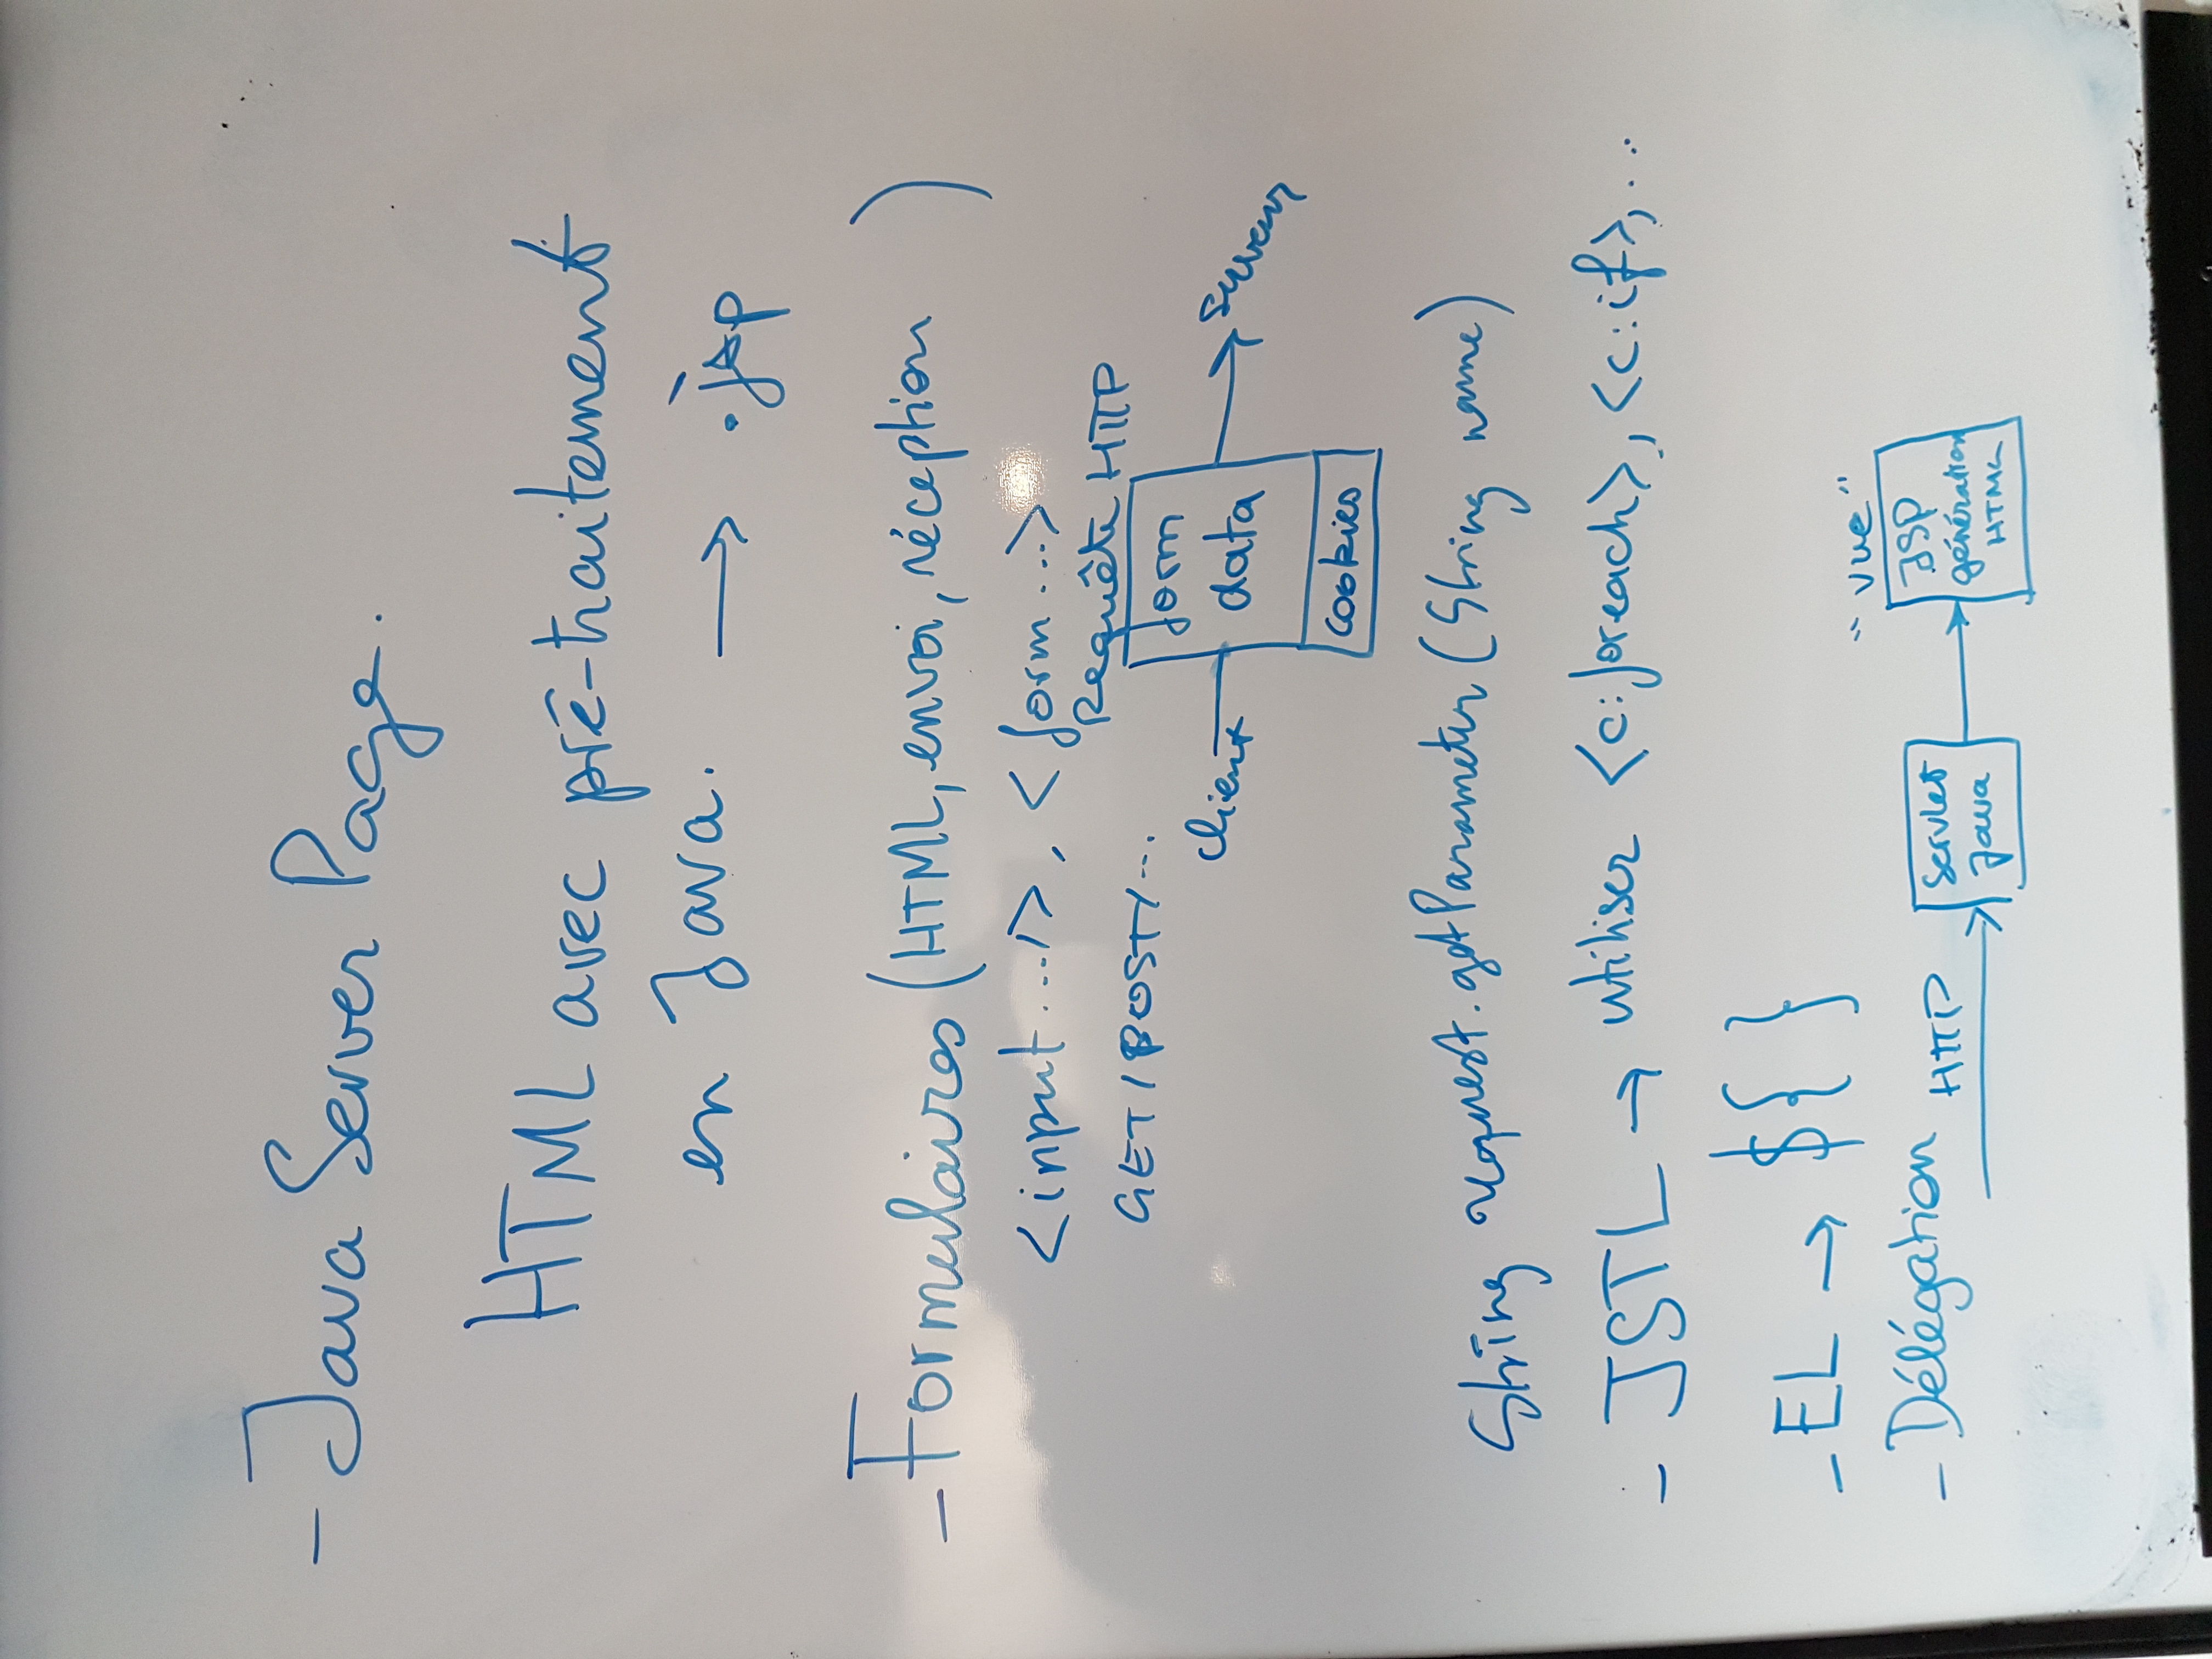 - Java Server Page.
HTML avec pré-traitement
en Java. → .jsp
- Formulaires (HTML, envoi, réception )
<input .../>, <form ...>
Requête HTTP
GET/POST/...
form
client data serveur
cookies
String request.getParameter (String name)
- JSTL → utiliser <c:foreach>, <c:if>, ...
- EL → ${ }
"vue"
- Délégation HTTP Servlet JSP
Java génération
HTML